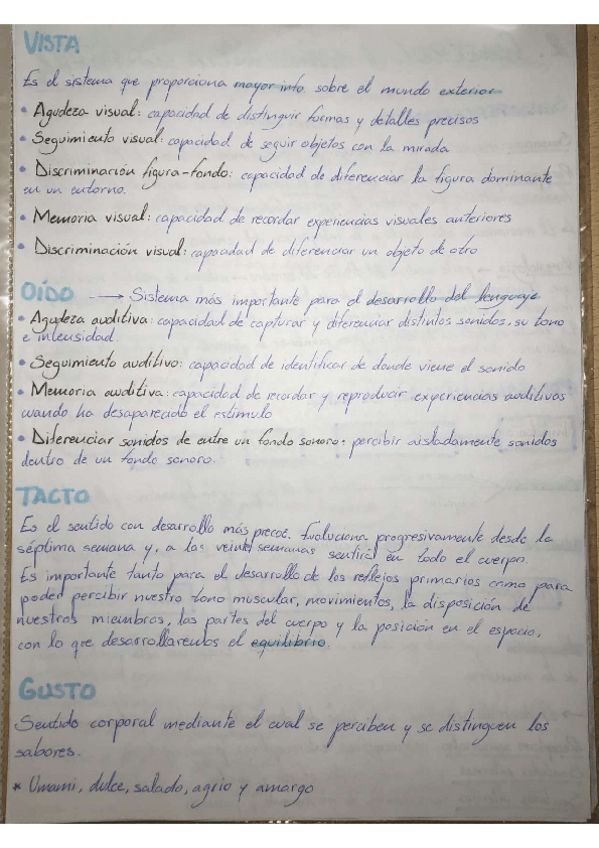 VISTA
Es el sistema que proporciona mayor info. sobre el mundo exterior
• Agudeza visual: capacidad de distinguir formas y detalles precisos
• Seguimiento visual: capacidad de seguir objetos con la mirada
• Discriminación figura-fondo: capacidad de diferenciar la figura dominante
en un entorno.
• Memoria visual: capacidad de recordar experiencias visuales anteriores
• Discriminación visual: capacidad de diferenciar un objeto de otro
OÍDO → Sistema más importante para el desarrollo del lenguaje
• Agudeza auditiva: capacidad de capturar y diferenciar distintos sonidos, su tono
e intensidad.
• Seguimiento auditivo: capacidad de identificar de donde viene el sonido
• Memoria auditiva: capacidad de recordar y reproducir experiencias auditivas
cuando ha desaparecido el estímulo
• Diferenciar sonidos de entre un fondo sonoro: percibir aisladamente sonidos
dentro de un fondo sonoro.
TACTO
Es el sentido con desarrollo más precoz. Evoluciona progresivamente desde la
séptima semana y, a las veinte semanas sentirá en todo el cuerpo.
Es importante tanto para el desarrollo de los reflejos primarios como para
poder percibir nuestro tono muscular, movimientos, la disposición de
nuestros miembros, las partes del cuerpo y la posición en el espacio,
con lo que desarrollaremos el equilibrio.
GUSTO
Sentido corporal mediante el cual se perciben y se distinguen los
sabores.
* Umami, dulce, salado, agrio y amargo